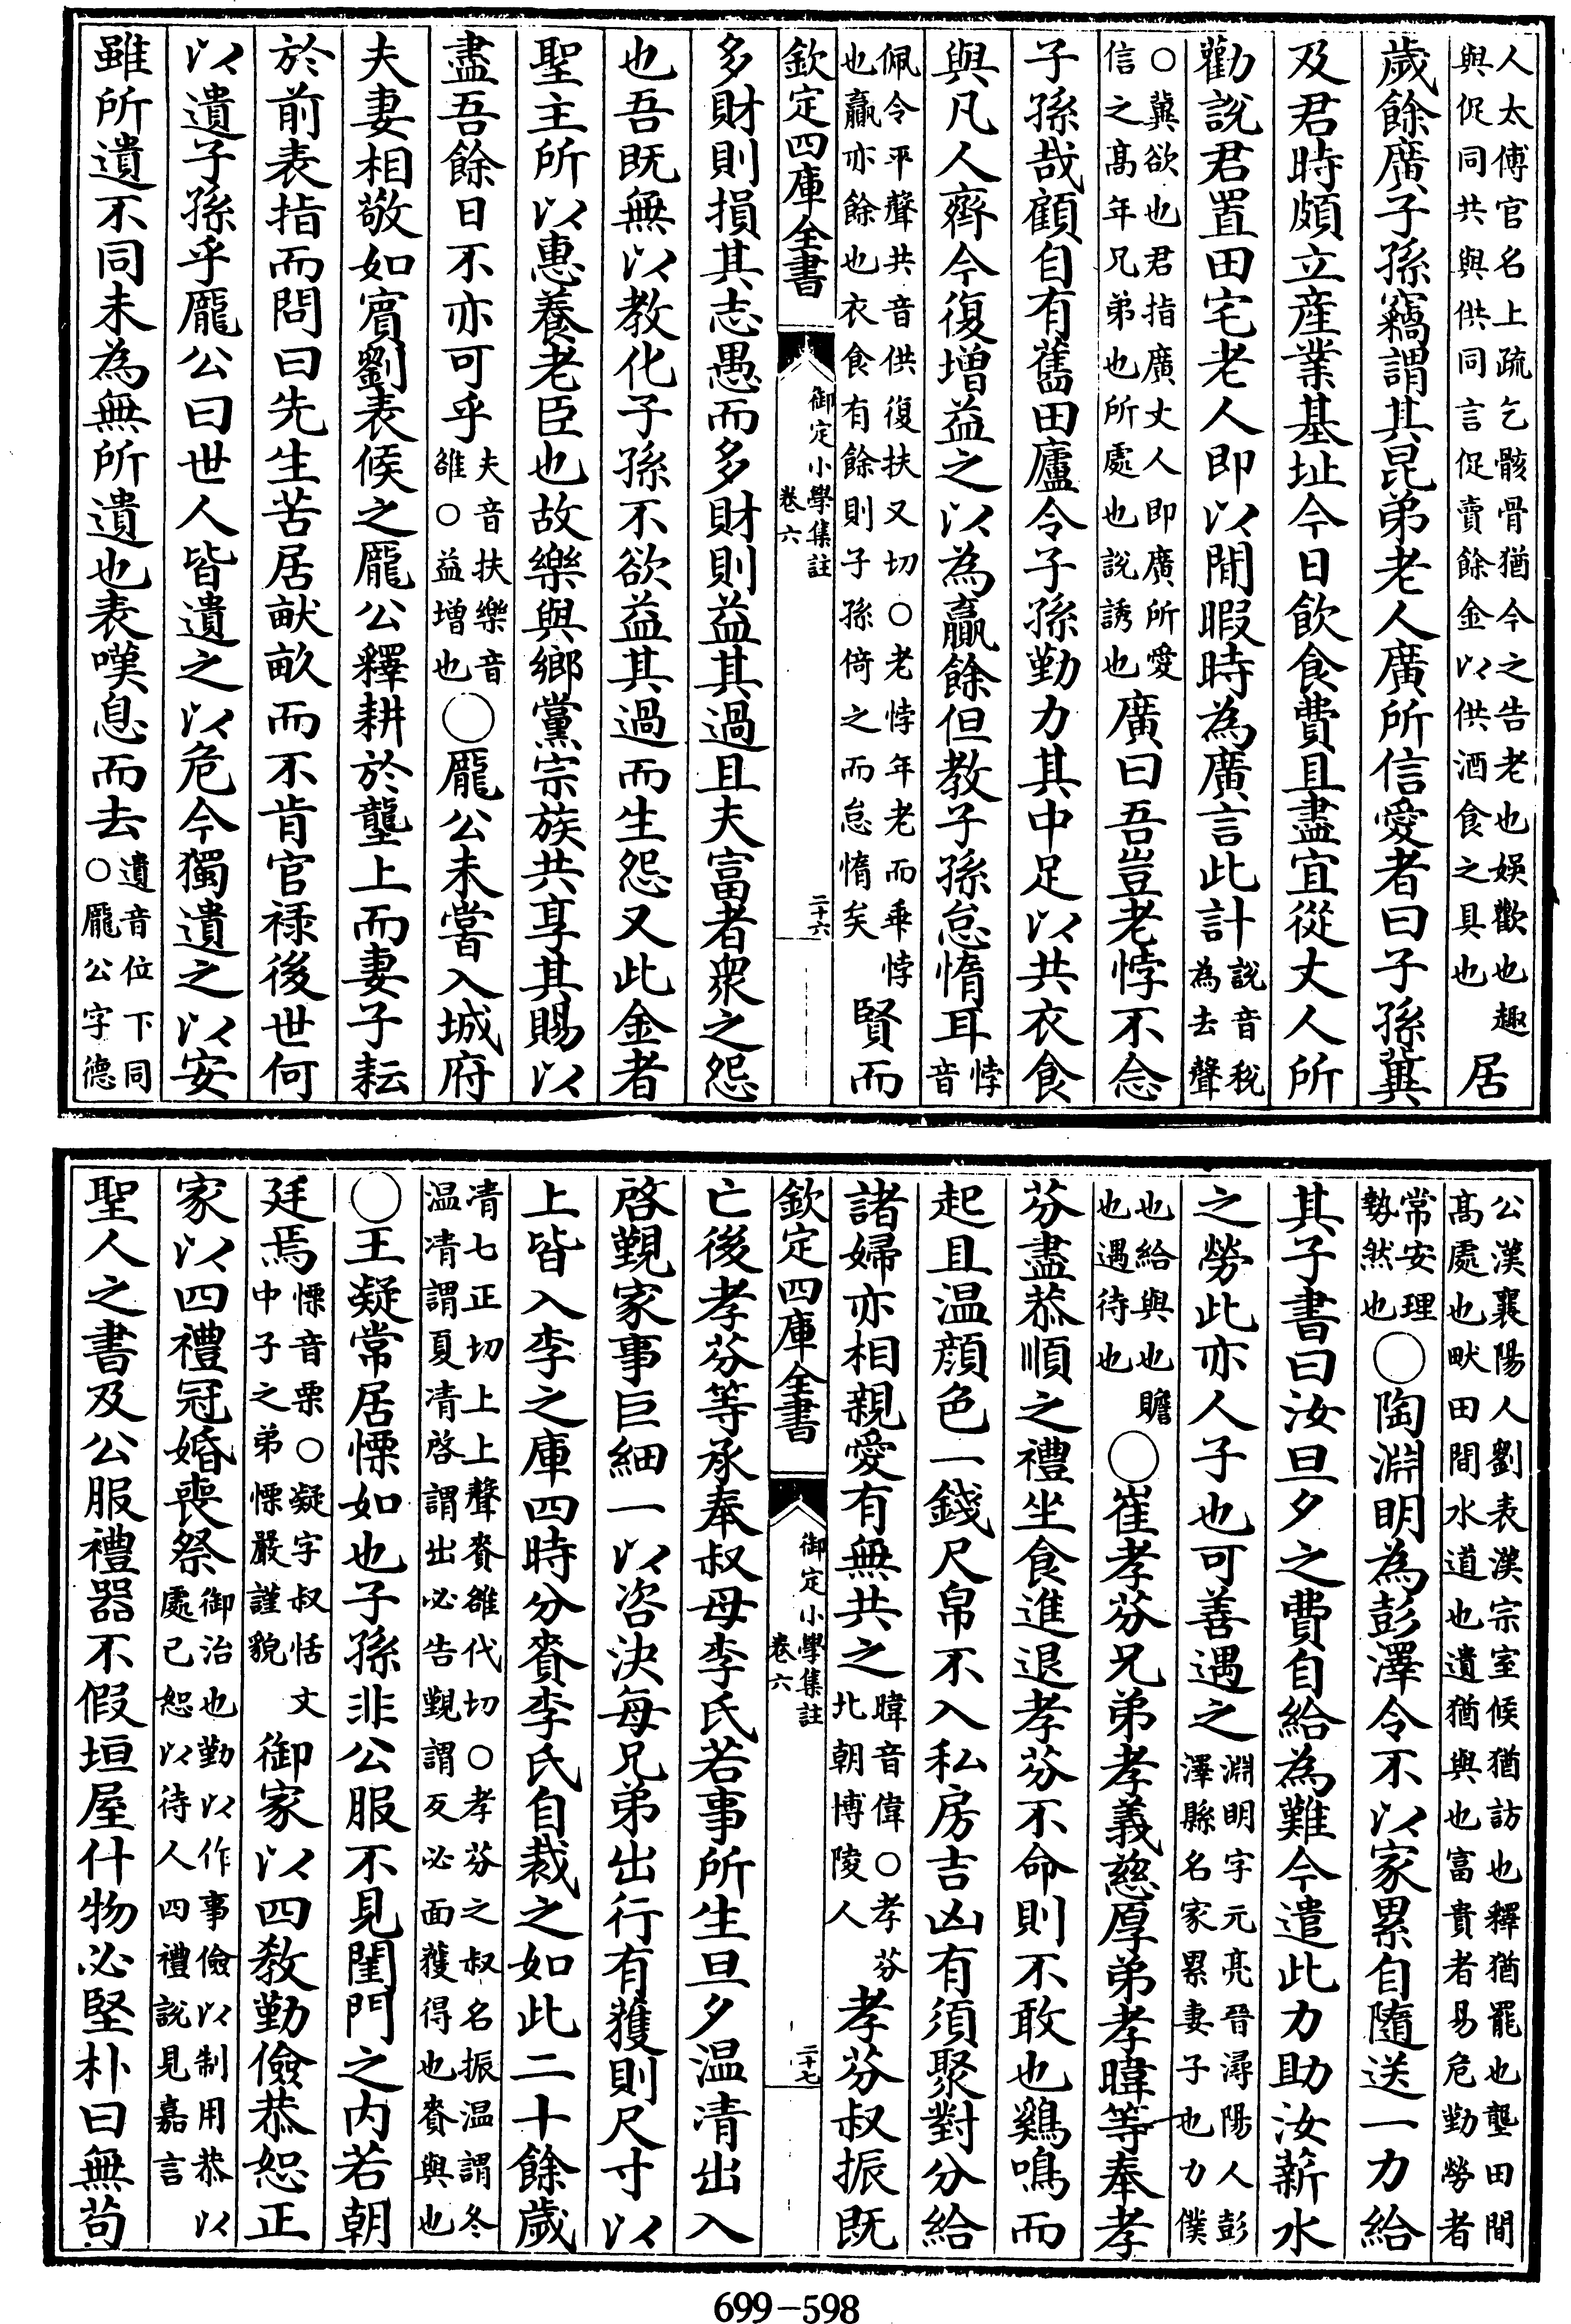 人太傅官名上疏乞骸骨猶今之告老也娯歡也趣
與促同共與供同言促賣餘金以供酒食之具也
居
歲餘廣子孫竊謂其昆弟老人廣所信愛者曰子孫冀
及君時頗立産業基址今日飲食費且盡宜從丈人所
勸説君置田宅老人即以閒暇時為廣言此計
説音税
為去聲
○冀欲也君指廣丈人即廣所愛
信之髙年兄弟也所處也説誘也
廣曰吾豈老悖不念
子孫哉顧自有舊田廬令子孫勤力其中足以共衣食
與凡人齊今復增益之以為贏餘但教子孫怠惰耳
悖
音
佩令平聲共音供復扶又切○老悖年老而乖悖
也贏亦餘也衣食有餘則子孫倚之而怠惰矣
賢而
欽定四庫全書
御定小學集註
卷六
二十六
多財則損其志愚而多財則益其過且夫富者衆之怨
也吾既無以教化子孫不欲益其過而生怨又此金者
聖主所以惠養老臣也故樂與鄉黨宗族共享其賜以
盡吾餘日不亦可乎
夫音扶樂音
雒○益增也
○龎公未嘗入城府
夫妻相敬如賓劉表候之龎公釋耕於壟上而妻子耘
於前表指而問曰先生苦居畎畝而不肯官禄後世何
以遺子孫乎龎公曰世人皆遺之以危今獨遺之以安
雖所遺不同未為無所遺也表嘆息而去
遺音位下同
○龎公字德
公漢襄陽人劉表漢宗室候猶訪也釋猶罷也壟田間
髙處也畎田間水道也遺猶與也富貴者易危勤勞者
常安理
勢然也
○陶淵明為彭澤令不以家累自隨送一力給
其子書曰汝旦夕之費自給為難今遣此力助汝薪水
之勞此亦人子也可善遇之
淵明字元亮晉潯陽人彭
澤縣名家累妻子也力僕
也給與也贍
也遇待也
○崔孝芬兄弟孝義慈厚弟孝暐等奉孝
芬盡恭順之禮坐食進退孝芬不命則不敢也鷄鳴而
起且温顔色一錢尺帛不入私房吉凶有須聚對分給
諸婦亦相親愛有無共之
暐音偉○孝芬
北朝博陵人
孝芬叔振既
欽定四庫全書
御定小學集註
卷六
二十七
亡後孝芬等承奉叔母李氏若事所生旦夕温凊出入
啓覲家事巨細一以咨決每兄弟出行有獲則尺寸以
上皆入李之庫四時分賚李氏自裁之如此二十餘歲
凊七正切上上聲賚雒代切○孝芬之叔名振温謂冬
温凊謂夏凊啓謂出必告覲謂反必面獲得也賚與也
○王凝常居慄如也子孫非公服不見閨門之内若朝
廷焉
慄音栗○凝字叔恬文
中子之弟慄嚴謹貌
御家以四教勤儉恭恕正
家以四禮冠婚喪祭
御治也勤以作事儉以制用恭以
處已恕以待人四禮説見嘉言
聖人之書及公服禮器不假垣屋什物必堅朴曰無苟
699-598